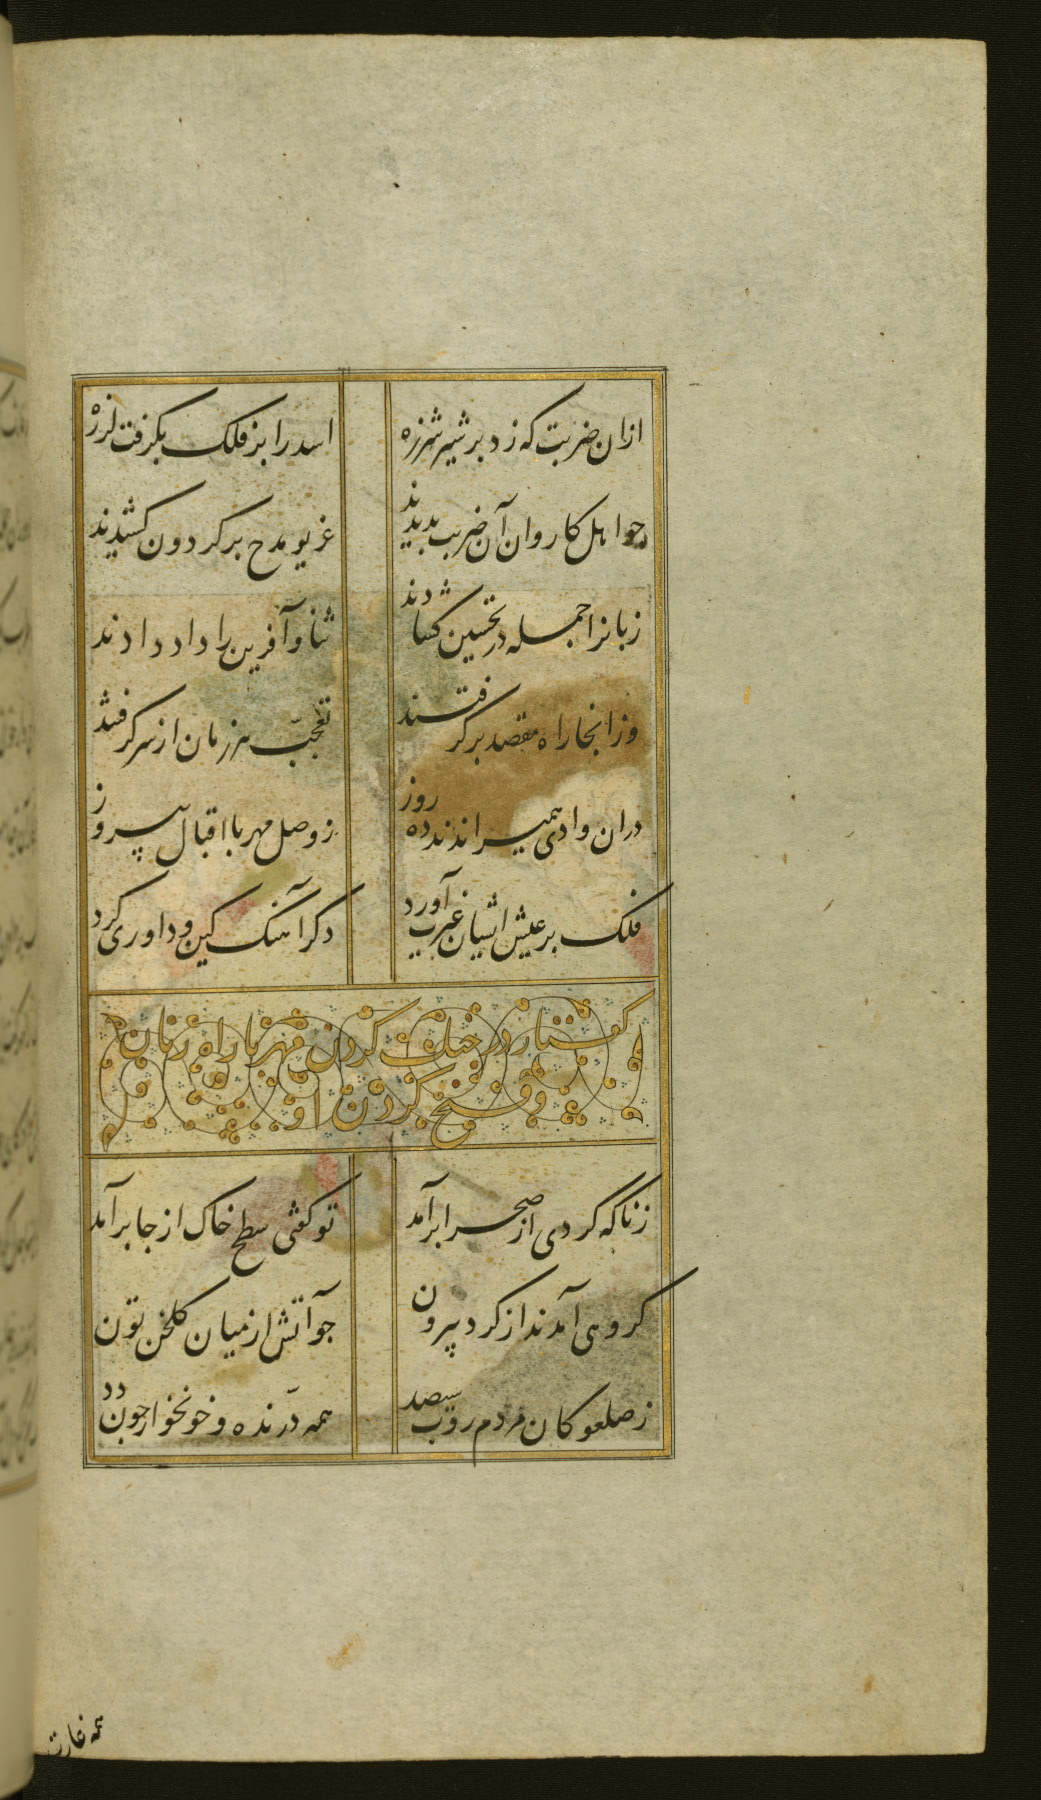 ازان ضربت که زد بر شیر شرزه اسد را بز فلک بکرفت لرزه
جو اهل کاروان آن ضرب بدیدند غریو مدح بر کردون کشیدند
زبانرا جمله در تحسین کشادند ثنا و آفرین را داد دادند
وز انجا راه مقصد بر کرفتند تعجب هر زمان از سر کرفتند
دران وادی همیراندند ده روز ز وصل مهر با اقبال پیروز
فلک بر عیش ایشان غیرت آورد دکر آهنک کین و داوری کرد
کفتار در جنک کردن مهر با راه زنان
و فتح کردن او
ز ناکه کردی از صحرا برآمد تو کفتی سطح خاک از جا برآمد
کروهی آمدند از کرد بیرون جو آتش از میان کلخن تون
ز صلعوکان مردم روب سیصد همه درنده و خونخوار جون دد
همه غارت